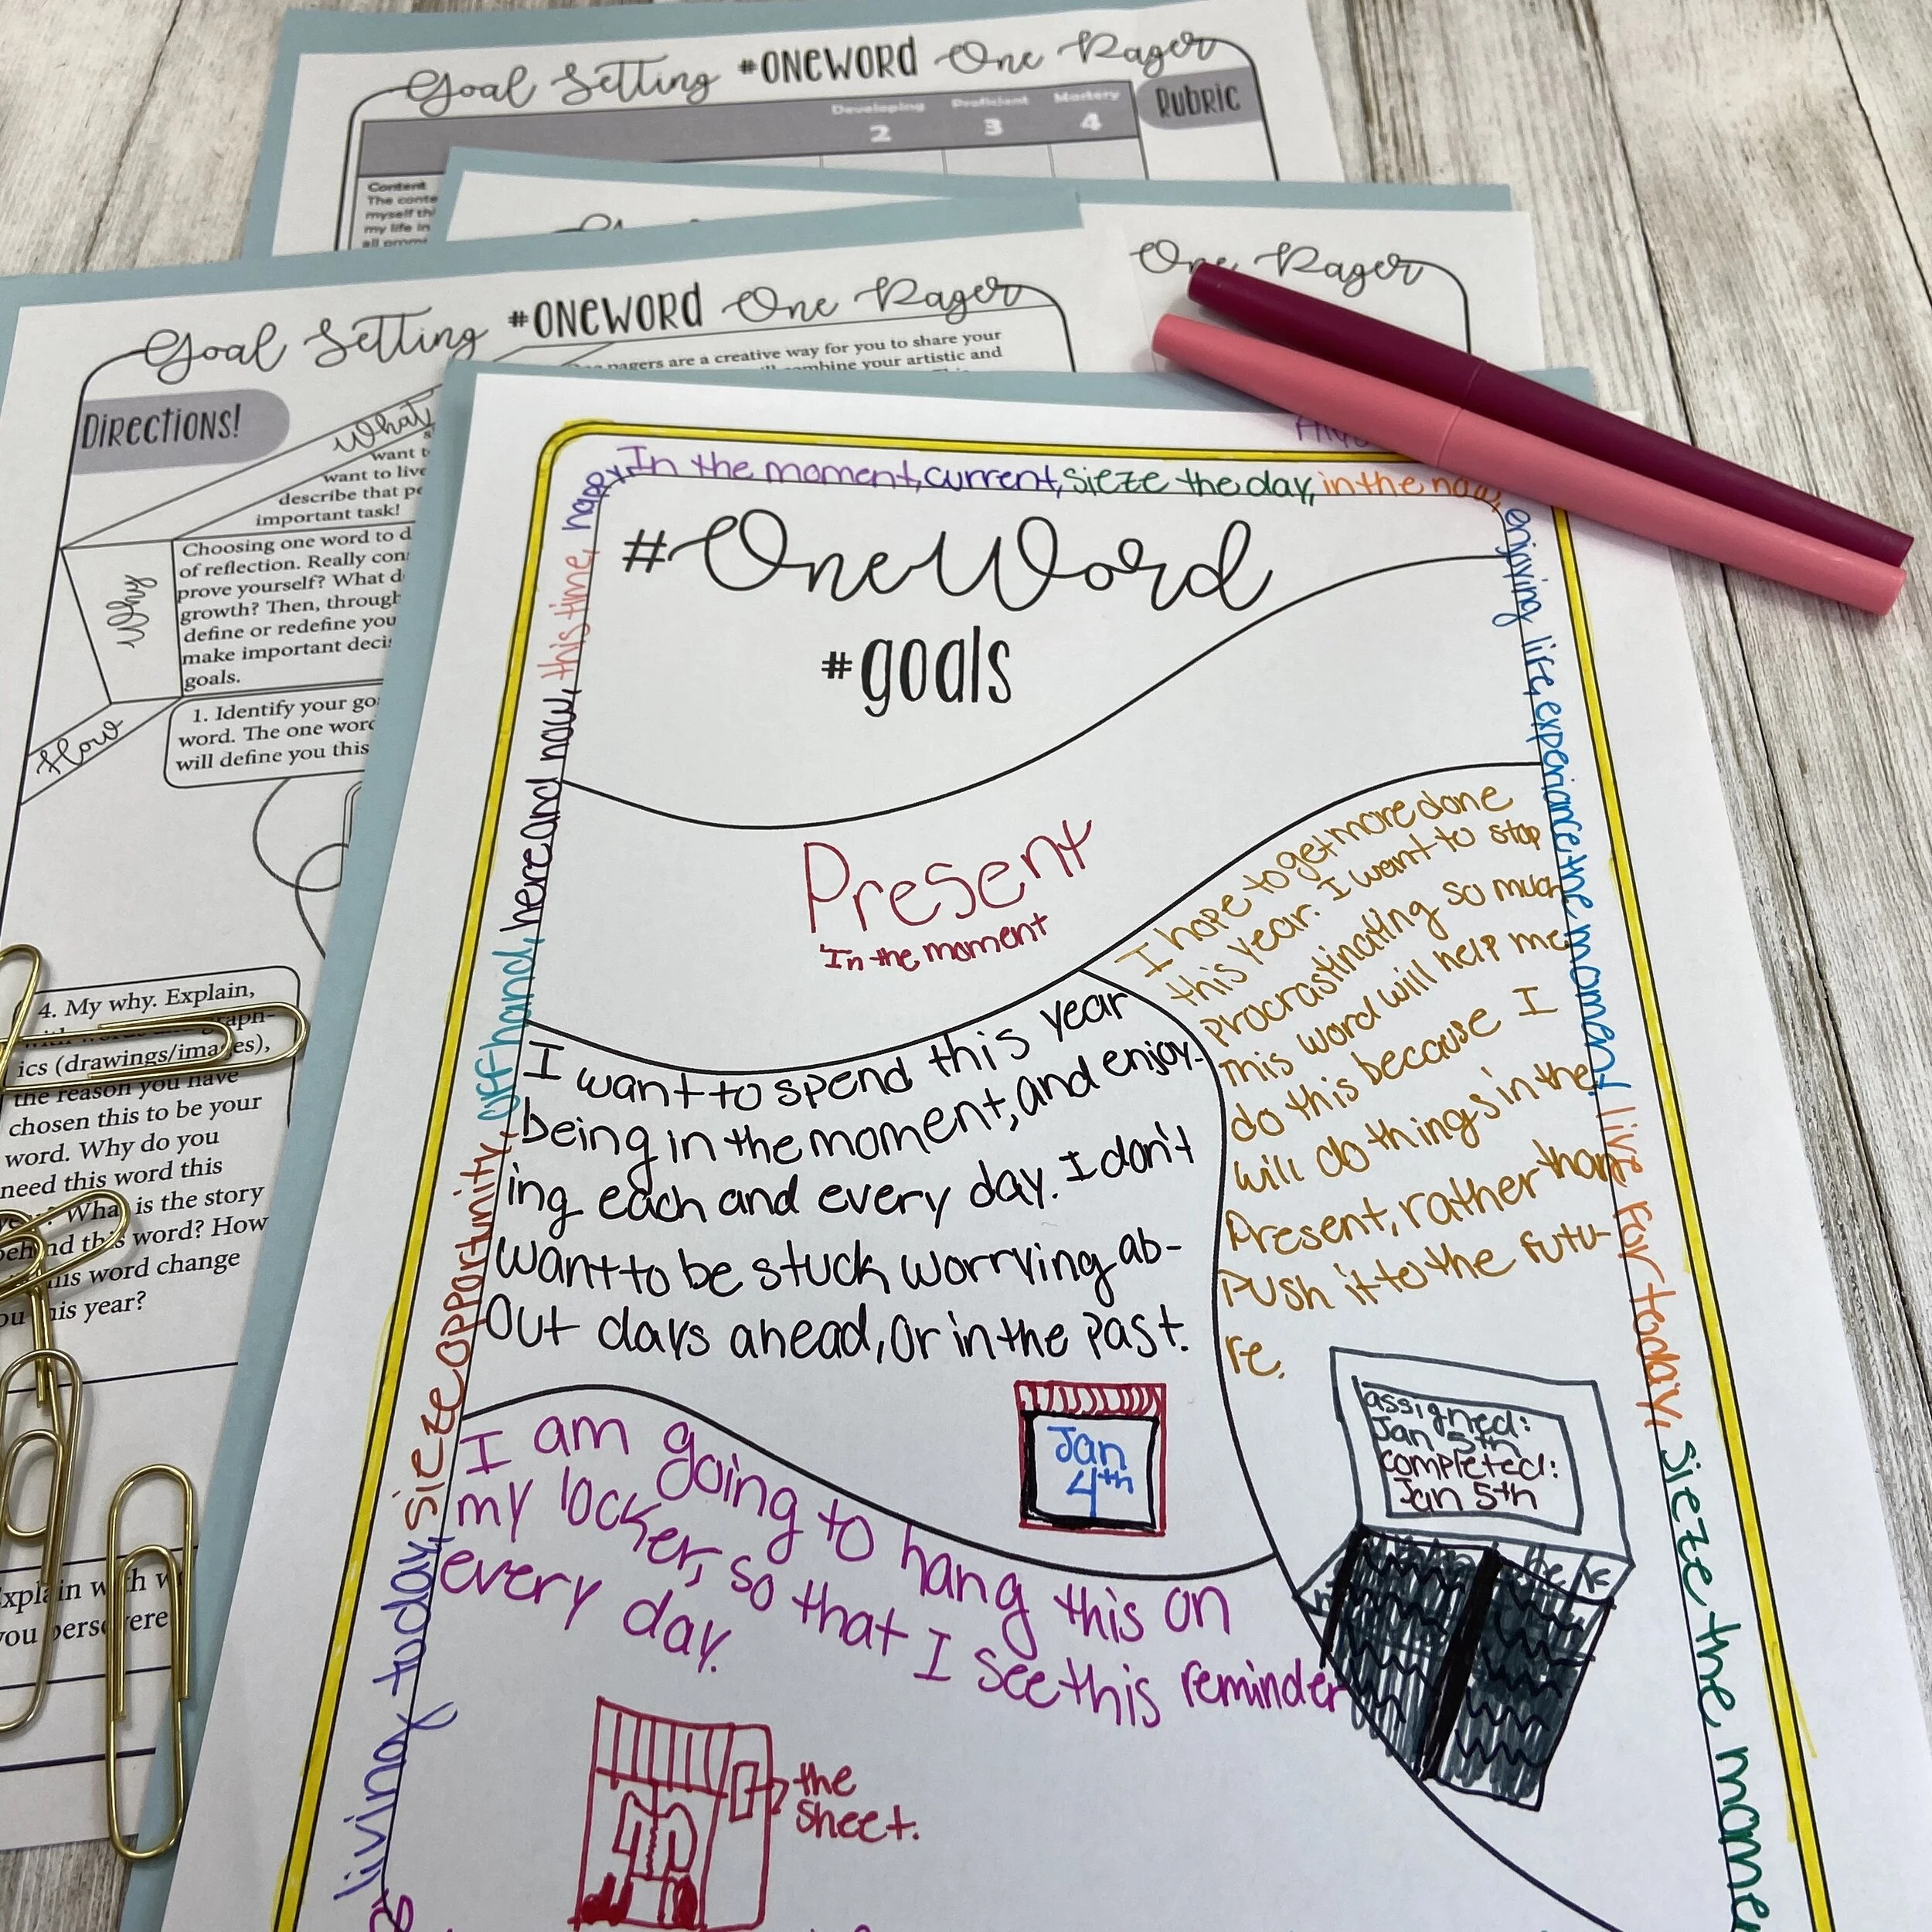 Goal Setting #ONEWORD One Pager
Rubric
Developing Proficient Mastery
2 3 4
Content
The conte
myself thi
my life in
One Pager
Goal Setting #ONEWORD One Pager
Directions!
pagers are a creative way for you to share your
combine your artistic and
What
want t
want to live
describe that pe
important task!
Why
Choosing one word to d
of reflection. Really con
prove yourself? What d
growth? Then, through
define or redefine you
make important deci
goals.
How
1. Identify your go
word. The one word
will define you this
4. My why. Explain,
ics (drawings/images),
the reason you have
chosen this to be your
word. Why do you
need this word this
What is the story
behind this word? How
this word change
you this year?
Explain with w
you persevere
In the moment, current, sieze the day, in the now,
enjoying life, experiance the moment, live for today, sieze the momen
living today, sieze opportunity, off hand, here and now, this time, happy,
#OneWord
#goals
Present
In the moment
I want to spend this year
being in the moment, and enjoy-
ing each and every day. I don't
want to be stuck worrying ab-
out days ahead, or in the past.
Jan
4th
I hope to get more done
this year. I want to stop
procrastinating so much
this word will help me
do this because I
will do things in the
Present, rather than
Push it to the futu-
re.
assigned:
Jan 5th
completed:
Jan 5th
I am going to hang this on
my locker, so that I see this reminder
every day.
the
sheet.